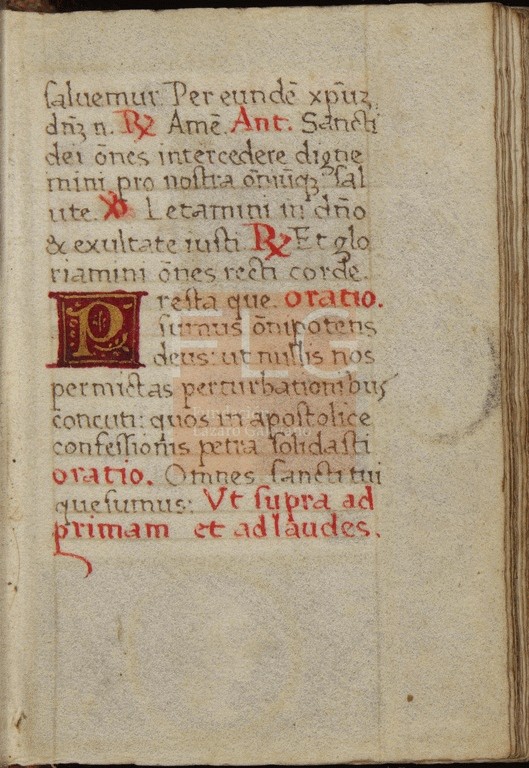 saluemur. Per eundē xp̄uz
dn̄z n. R⁊ Amē. Ant. Sancti
dei ōnes intercedere digne
mini pro nostra ōniūqz sal
ute. ℣ Letamini in dn̄o
& exultate iusti. R⁊ Et glo
riamini ōnes recti corde.
Presta que. oratio.
sumus ōnipotens
deus: ut nullis nos
permictas perturbationibus
concuti: quos in apostolice
confessionis petra solidasti
oratio. Omnes sancti tui
quesumus: Vt supra ad
primam et ad laudes.
FLG
Lázaro Galdiano